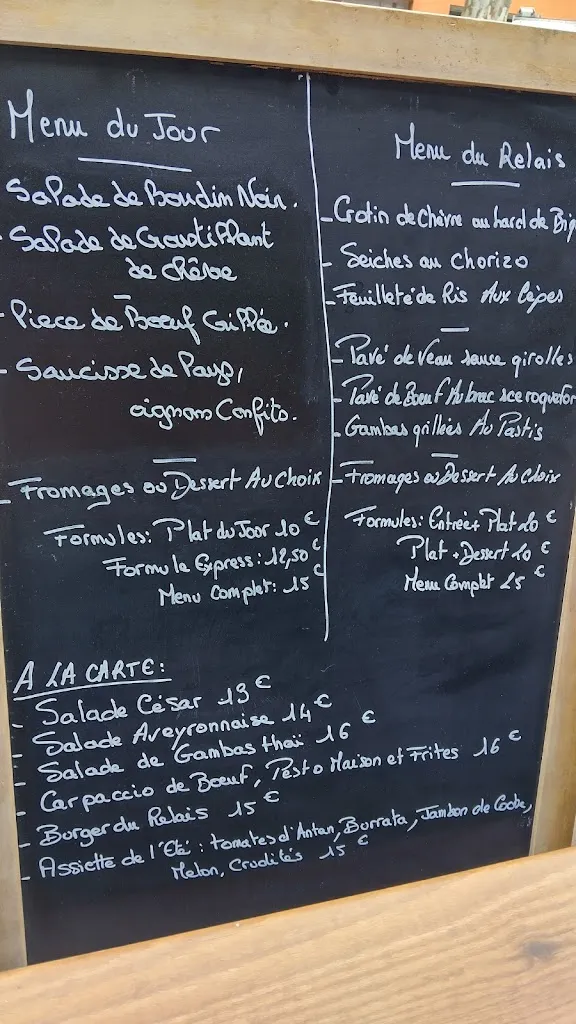 Menu du Jour
Salade de Boudin Noir.
- Salade de Croustillant
de chèvre
- Piece de Boeuf Grillée.
- Saucisse de Pays,
oignons Confits.
- Fromages ou Dessert Au Choix
Formules: Plat du Jour 10 €
Formule Express: 12,50 €
Menu Complet: 15 €
Menu du Relais
- Crotin de chèvre au lard de Big
- Seiches au Chorizo
- Feuilleté de Ris Aux Cèpes
- Pavé de Veau sauce girolles
- Pavé de Boeuf Aubrac sce roquefor
- Gambas grillées Au Pastis
- Fromages ou Dessert Au Choix
Formules: Entrée + Plat 20 €
Plat + Dessert 20 €
Menu Complet 25 €
A LA CARTE:
- Salade César 13 €
- Salade Aveyronnaise 14 €
- Salade de Gambas thaï 16 €
- Carpaccio de Boeuf, Pesto Maison et Frites 16 €
- Burger du Relais 15 €
- Assiette de l'Eté: tomates d'Antan, Burrata, Jambon de Coche,
Melon, Crudités 15 €